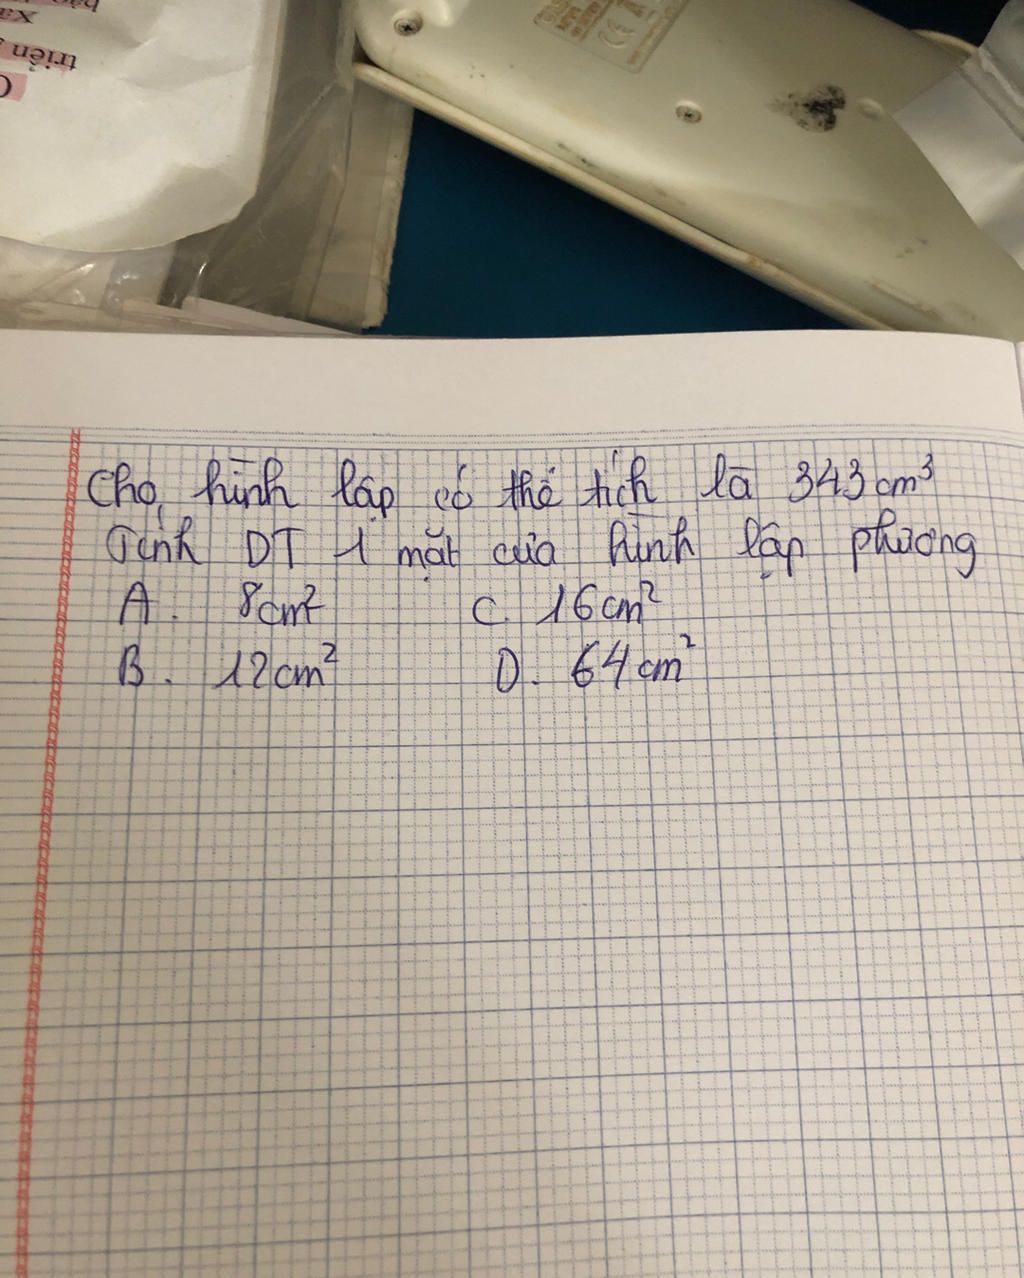 triển
Cho hình lập có thể tích là 343cm³
Tính DT 1 mặt của hình lập phương
A. 8cm² C. 16cm²
B. 12cm² D. 64cm²